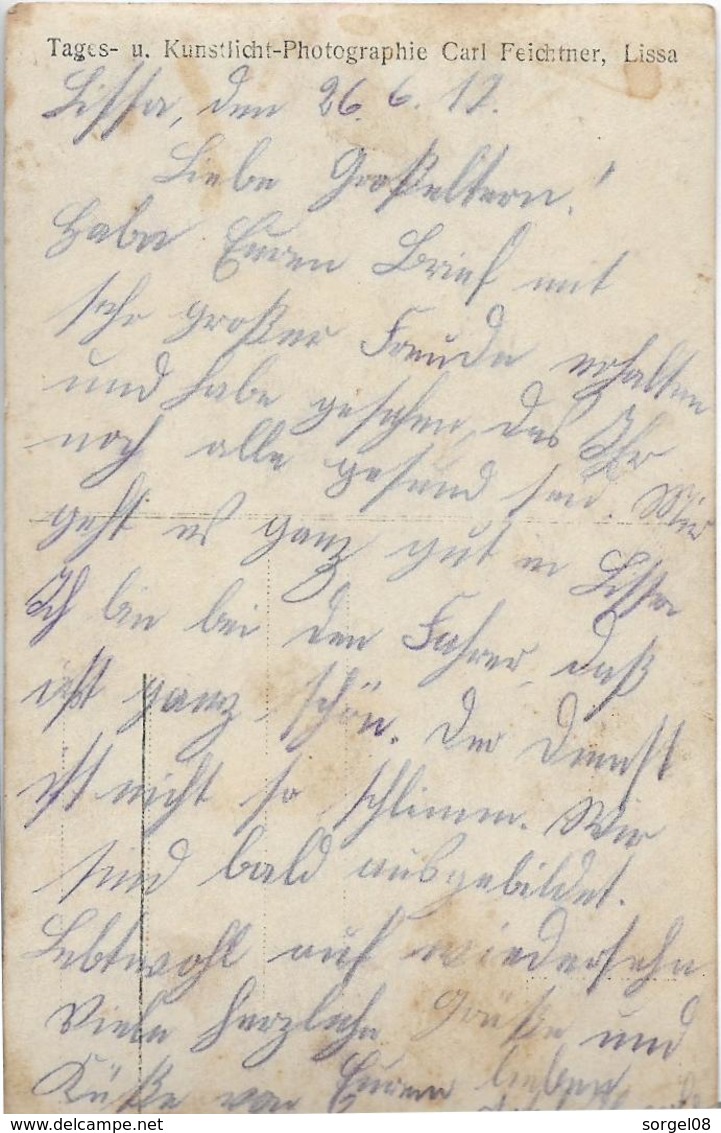 Tages- u. Kunstlicht-Photographie Carl Feichtner, Lissa
Lissa, den 26. 6. 17.
Liebe Großeltern!
Habe Euren Brief mit
sehr großer Freude erhalten
und habe gesehen, das Ihr
noch alle gesund seid. Mir
geht es ganz gut in Lissa
Ich bin bei den Fahrer, daß
ist ganz schön. Der Dienst
ist nicht so schlimm. Wir
sind bald ausgebildet.
Lebtwohl auf wiedersehn
Viele herzliche Grüße und
Küße von Euren lieben
sorgel08